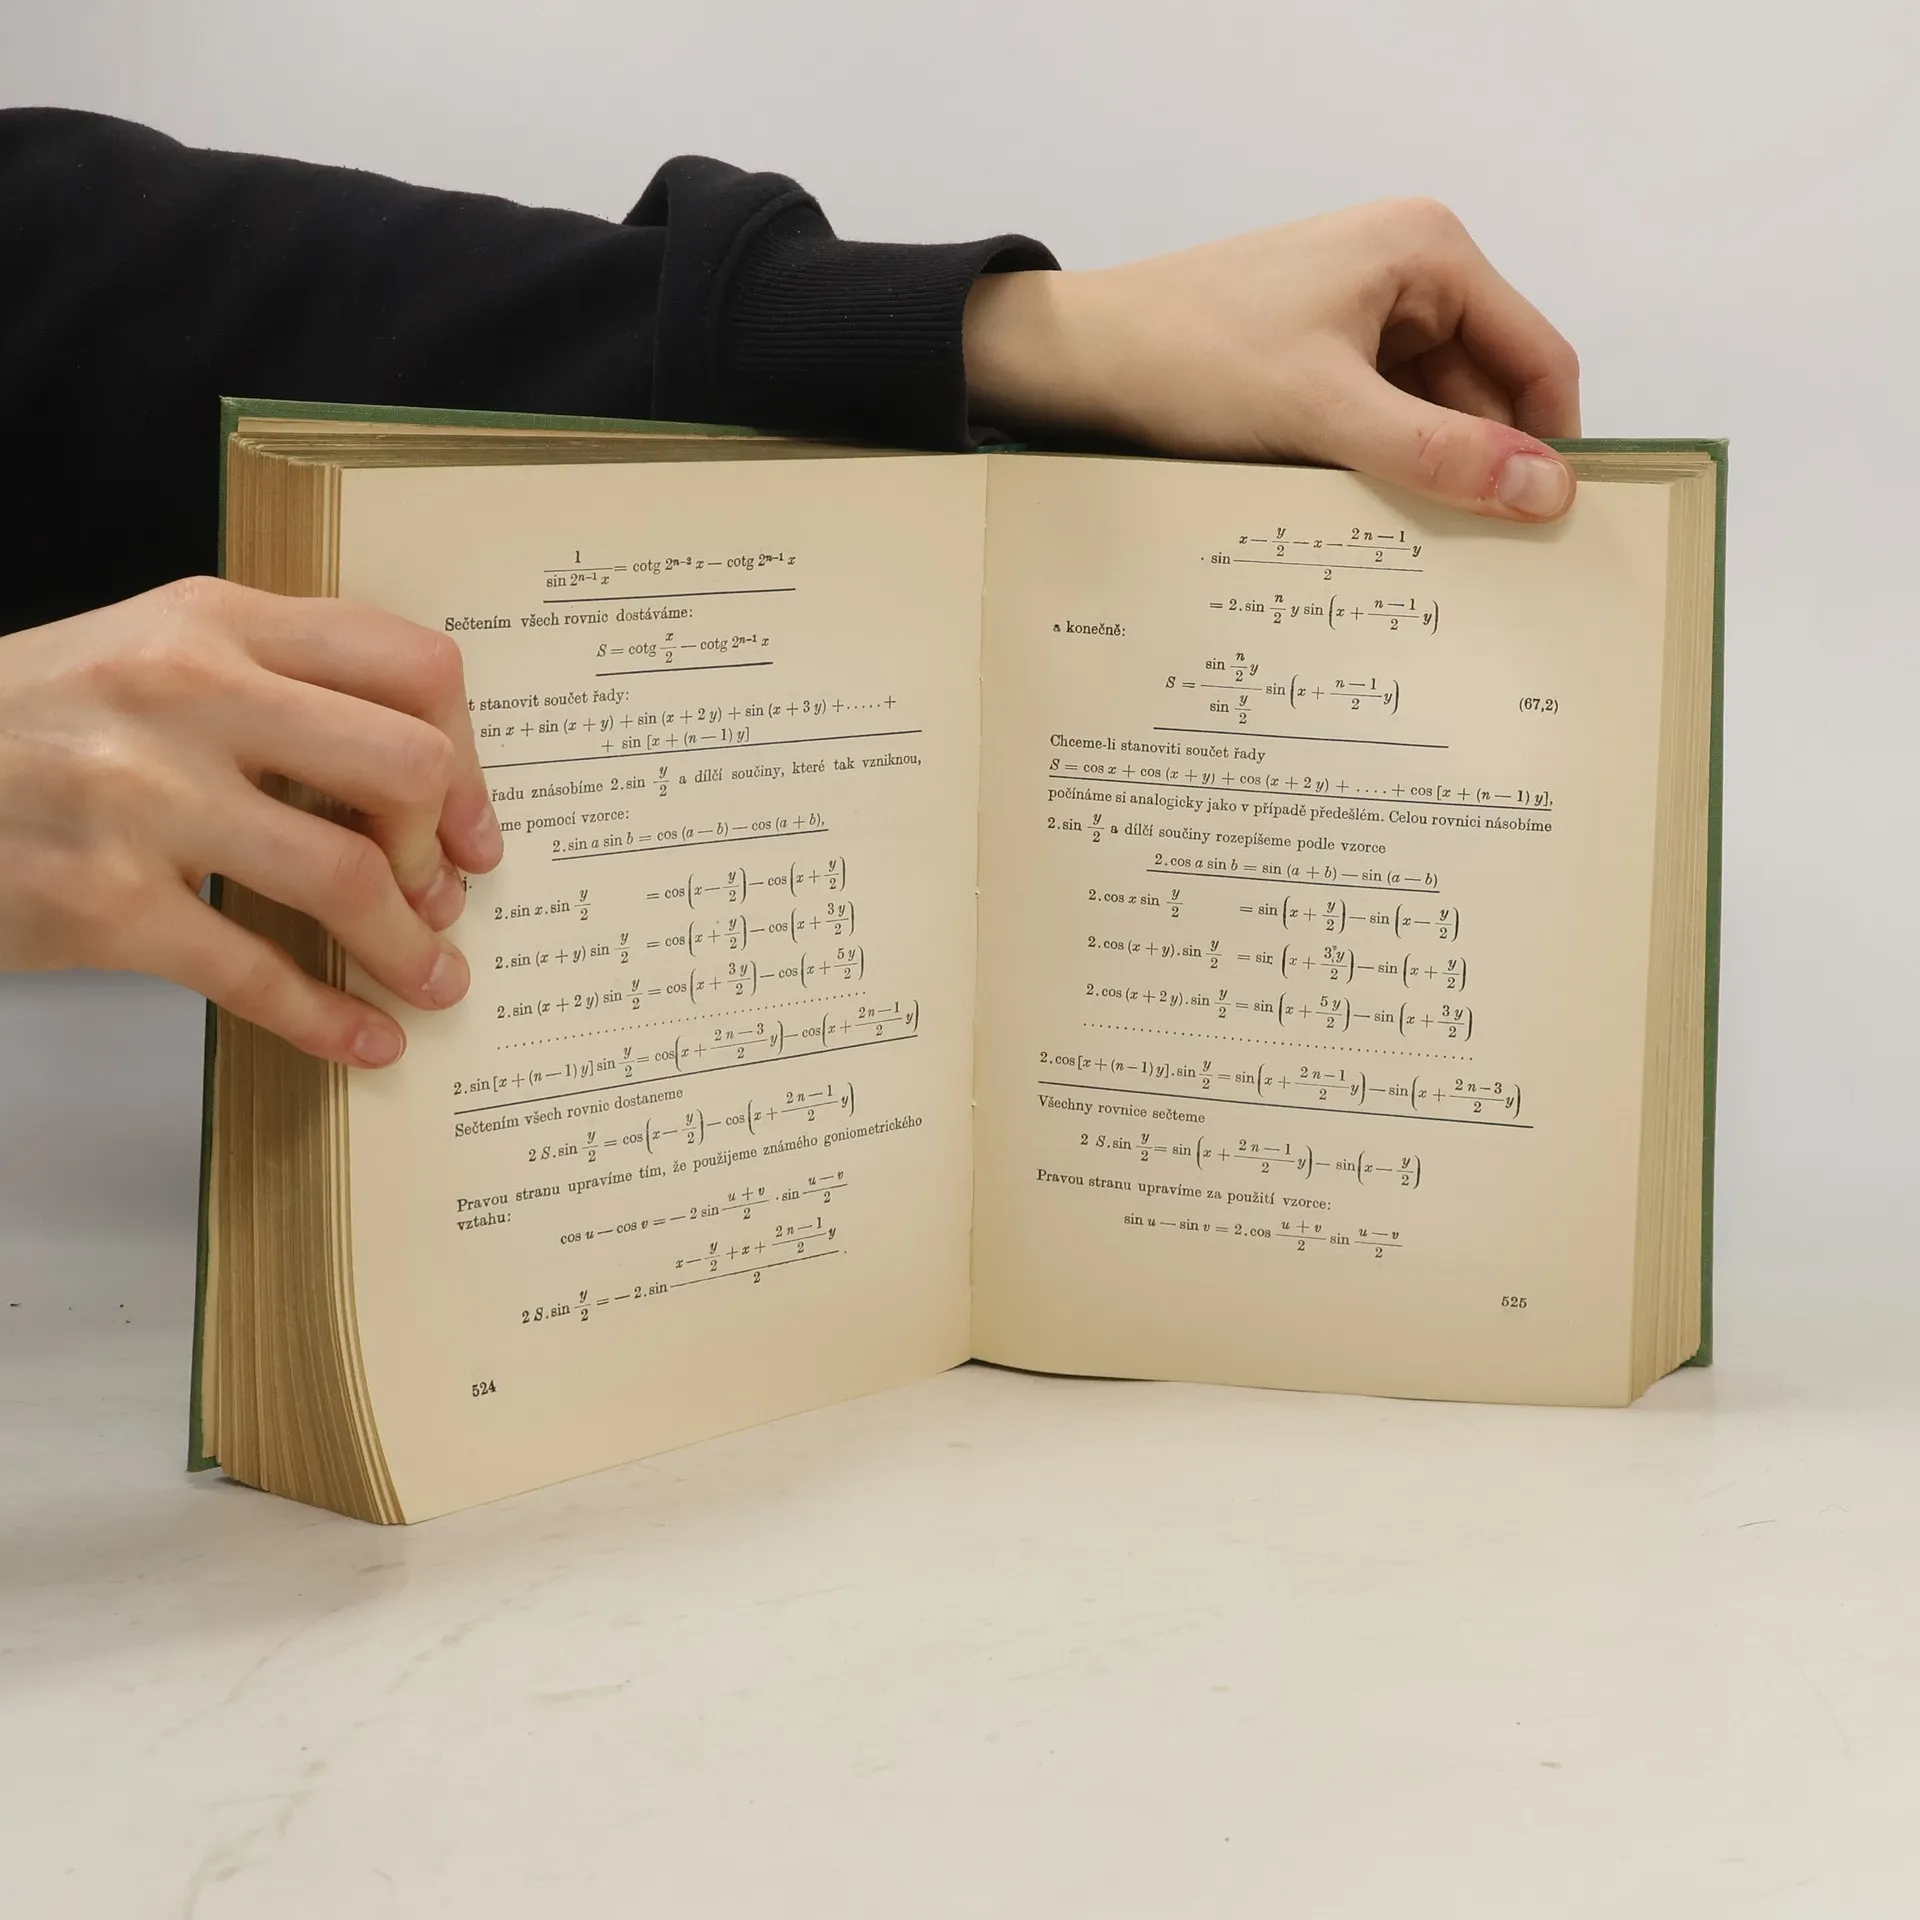 1/(sin 2ⁿ⁻¹ x) = cotg 2ⁿ⁻² x — cotg 2ⁿ⁻¹ x
Sečtením všech rovnic dostáváme:
S = cotg x/2 — cotg 2ⁿ⁻¹ x
t stanovit součet řady:
sin x + sin (x + y) + sin (x + 2 y) + sin (x + 3 y) + ..... +
+ sin [x + (n — 1) y]
řadu znásobíme 2.sin y/2 a dílčí součiny, které tak vzniknou,
me pomocí vzorce:
2.sin a sin b = cos (a — b) — cos (a + b),
j.
2.sin x.sin y/2 = cos(x — y/2) — cos(x + y/2)
2.sin (x + y) sin y/2 = cos(x + y/2) — cos(x + 3 y/2)
2.sin (x + 2 y) sin y/2 = cos(x + 3 y/2) — cos(x + 5 y/2)
. . . . . . . . . . . . . . . . . . . . . . . . . . . . . .
2.sin [x + (n — 1) y] sin y/2 = cos(x + (2 n — 3)/2 y) — cos(x + (2 n — 1)/2 y)
Sečtením všech rovnic dostaneme
2 S.sin y/2 = cos(x — y/2) — cos(x + (2 n — 1)/2 y)
Pravou stranu upravíme tím, že použijeme známého goniometrického
vztahu:
cos u — cos v = — 2 sin (u + v)/2 . sin (u — v)/2
2 S.sin y/2 = — 2.sin (x — y/2 + x + (2 n — 1)/2 y)/2 .
524
. sin (x — y/2 — x — (2 n — 1)/2 y)/2
= 2.sin n/2 y sin (x + (n — 1)/2 y)
a konečně:
S = (sin n/2 y)/(sin y/2) sin (x + (n — 1)/2 y) (67,2)
Chceme-li stanoviti součet řady
S = cos x + cos (x + y) + cos (x + 2 y) + .... + cos [x + (n — 1) y],
počínáme si analogicky jako v případě předešlém. Celou rovnici násobíme
2.sin y/2 a dílčí součiny rozepíšeme podle vzorce
2.cos a sin b = sin (a + b) — sin (a — b)
2.cos x sin y/2 = sin (x + y/2) — sin (x — y/2)
2.cos (x + y).sin y/2 = sin (x + 3 y/2) — sin (x + y/2)
2.cos (x + 2 y).sin y/2 = sin (x + 5 y/2) — sin (x + 3 y/2)
. . . . . . . . . . . . . . . . . . . . . . . . . . . . . .
2.cos [x + (n — 1) y].sin y/2 = sin(x + (2 n — 1)/2 y) — sin(x + (2 n — 3)/2 y)
Všechny rovnice sečteme
2 S.sin y/2 = sin (x + (2 n — 1)/2 y) — sin(x — y/2)
Pravou stranu upravíme za použití vzorce:
sin u — sin v = 2.cos (u + v)/2 sin (u — v)/2
525